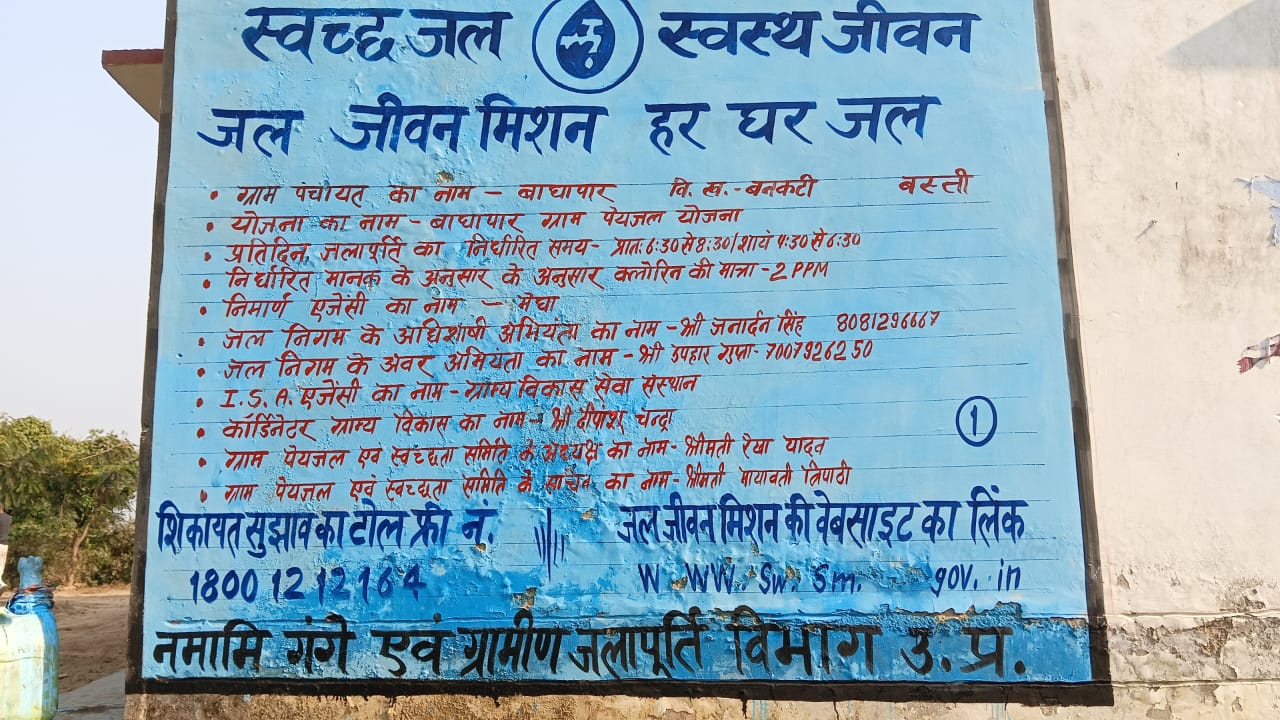 स्वच्छ जल स्वस्थ जीवन
जल जीवन मिशन हर घर जल
• ग्राम पंचायत का नाम - बाघापार वि. ख. - बनकटी बस्ती
• योजना का नाम - बाघापार ग्राम पेयजल योजना
• प्रतिदिन जलापूर्ति का निर्धारित समय - प्रात: 6:30 से 8:30/शायं 4:30 से 6:30
• निर्धारित मानक के अनुसार के अनुसार क्लोरिन की मात्रा - 2 PPM
• निमार्ण एजेंसी का नाम - मेघा
• जल निगम के अधिशाषी अभियंता का नाम - श्री जनार्दन सिंह 8081296667
• जल निगम के अवर अभियंता का नाम - श्री उपहार गुप्ता - 7007926250
• I.S.A. एजेंसी का नाम - ग्राम्य विकास सेवा संस्थान
• कॉर्डिनेटर ग्राम्य विकास का नाम - श्री चन्द्रा
• ग्राम पेयजल एवं स्वच्छता समिति के अध्यक्ष का नाम - श्रीमती रेखा यादव
• ग्राम पेयजल एवं स्वच्छता समिति के सचिव का नाम - श्रीमती मायावती त्रिपाठी
1
शिकायत सुझाव का टोल फ्री नं. जल जीवन मिशन की वेबसाइट का लिंक
1800 12 12 164 W WW. Sw. Sm. gov. in
नमामि गंगे एवं ग्रामीण जलापूर्ति विभाग उ. प्र.